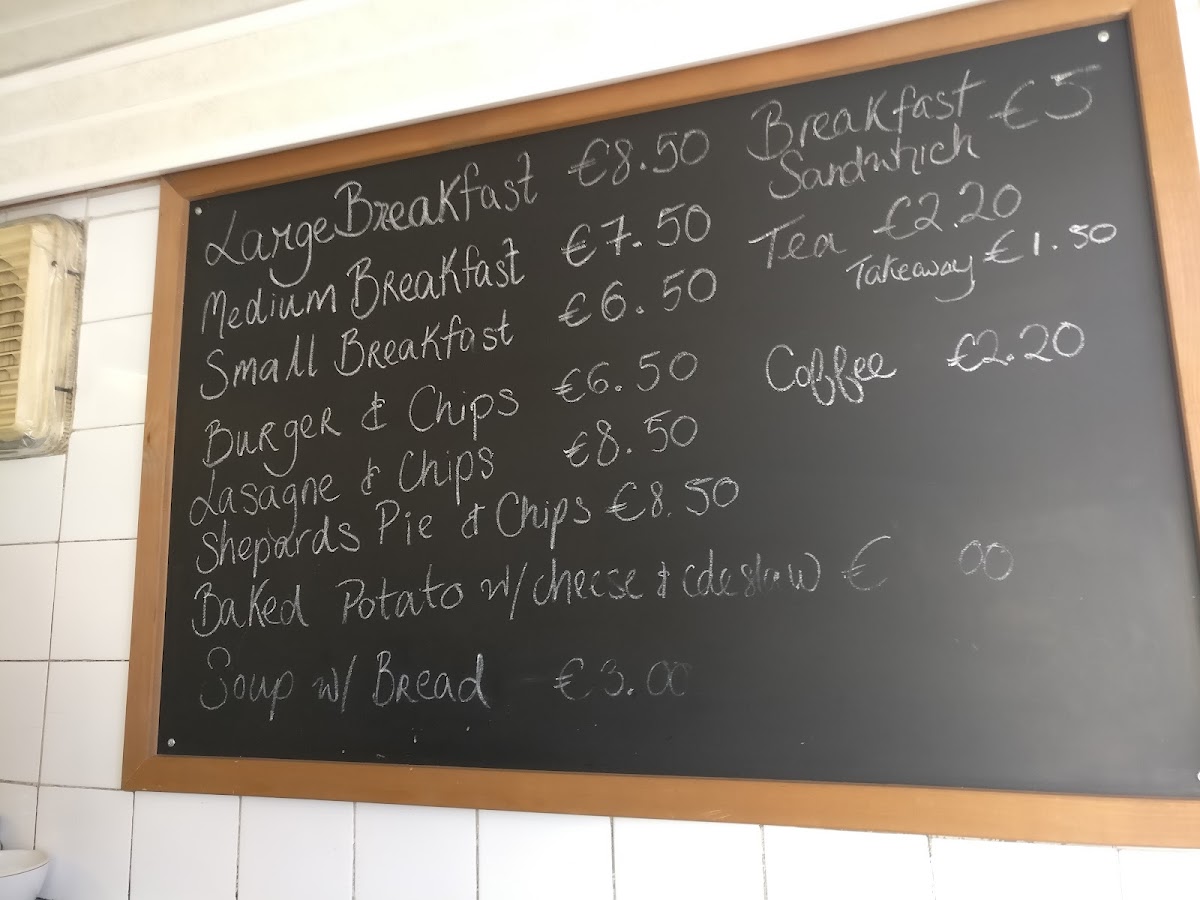 Large Breakfast €8.50
Medium Breakfast €7.50
Small Breakfast €6.50
Burger & Chips €6.50
Lasagne & Chips €8.50
Shepards Pie & Chips €8.50
Baked Potato w/ cheese & coleslaw € 00
Soup w/ Bread €3.00
Breakfast €5
Sandwhich
Tea €2.20
Takeaway €1.50
Coffee €2.20